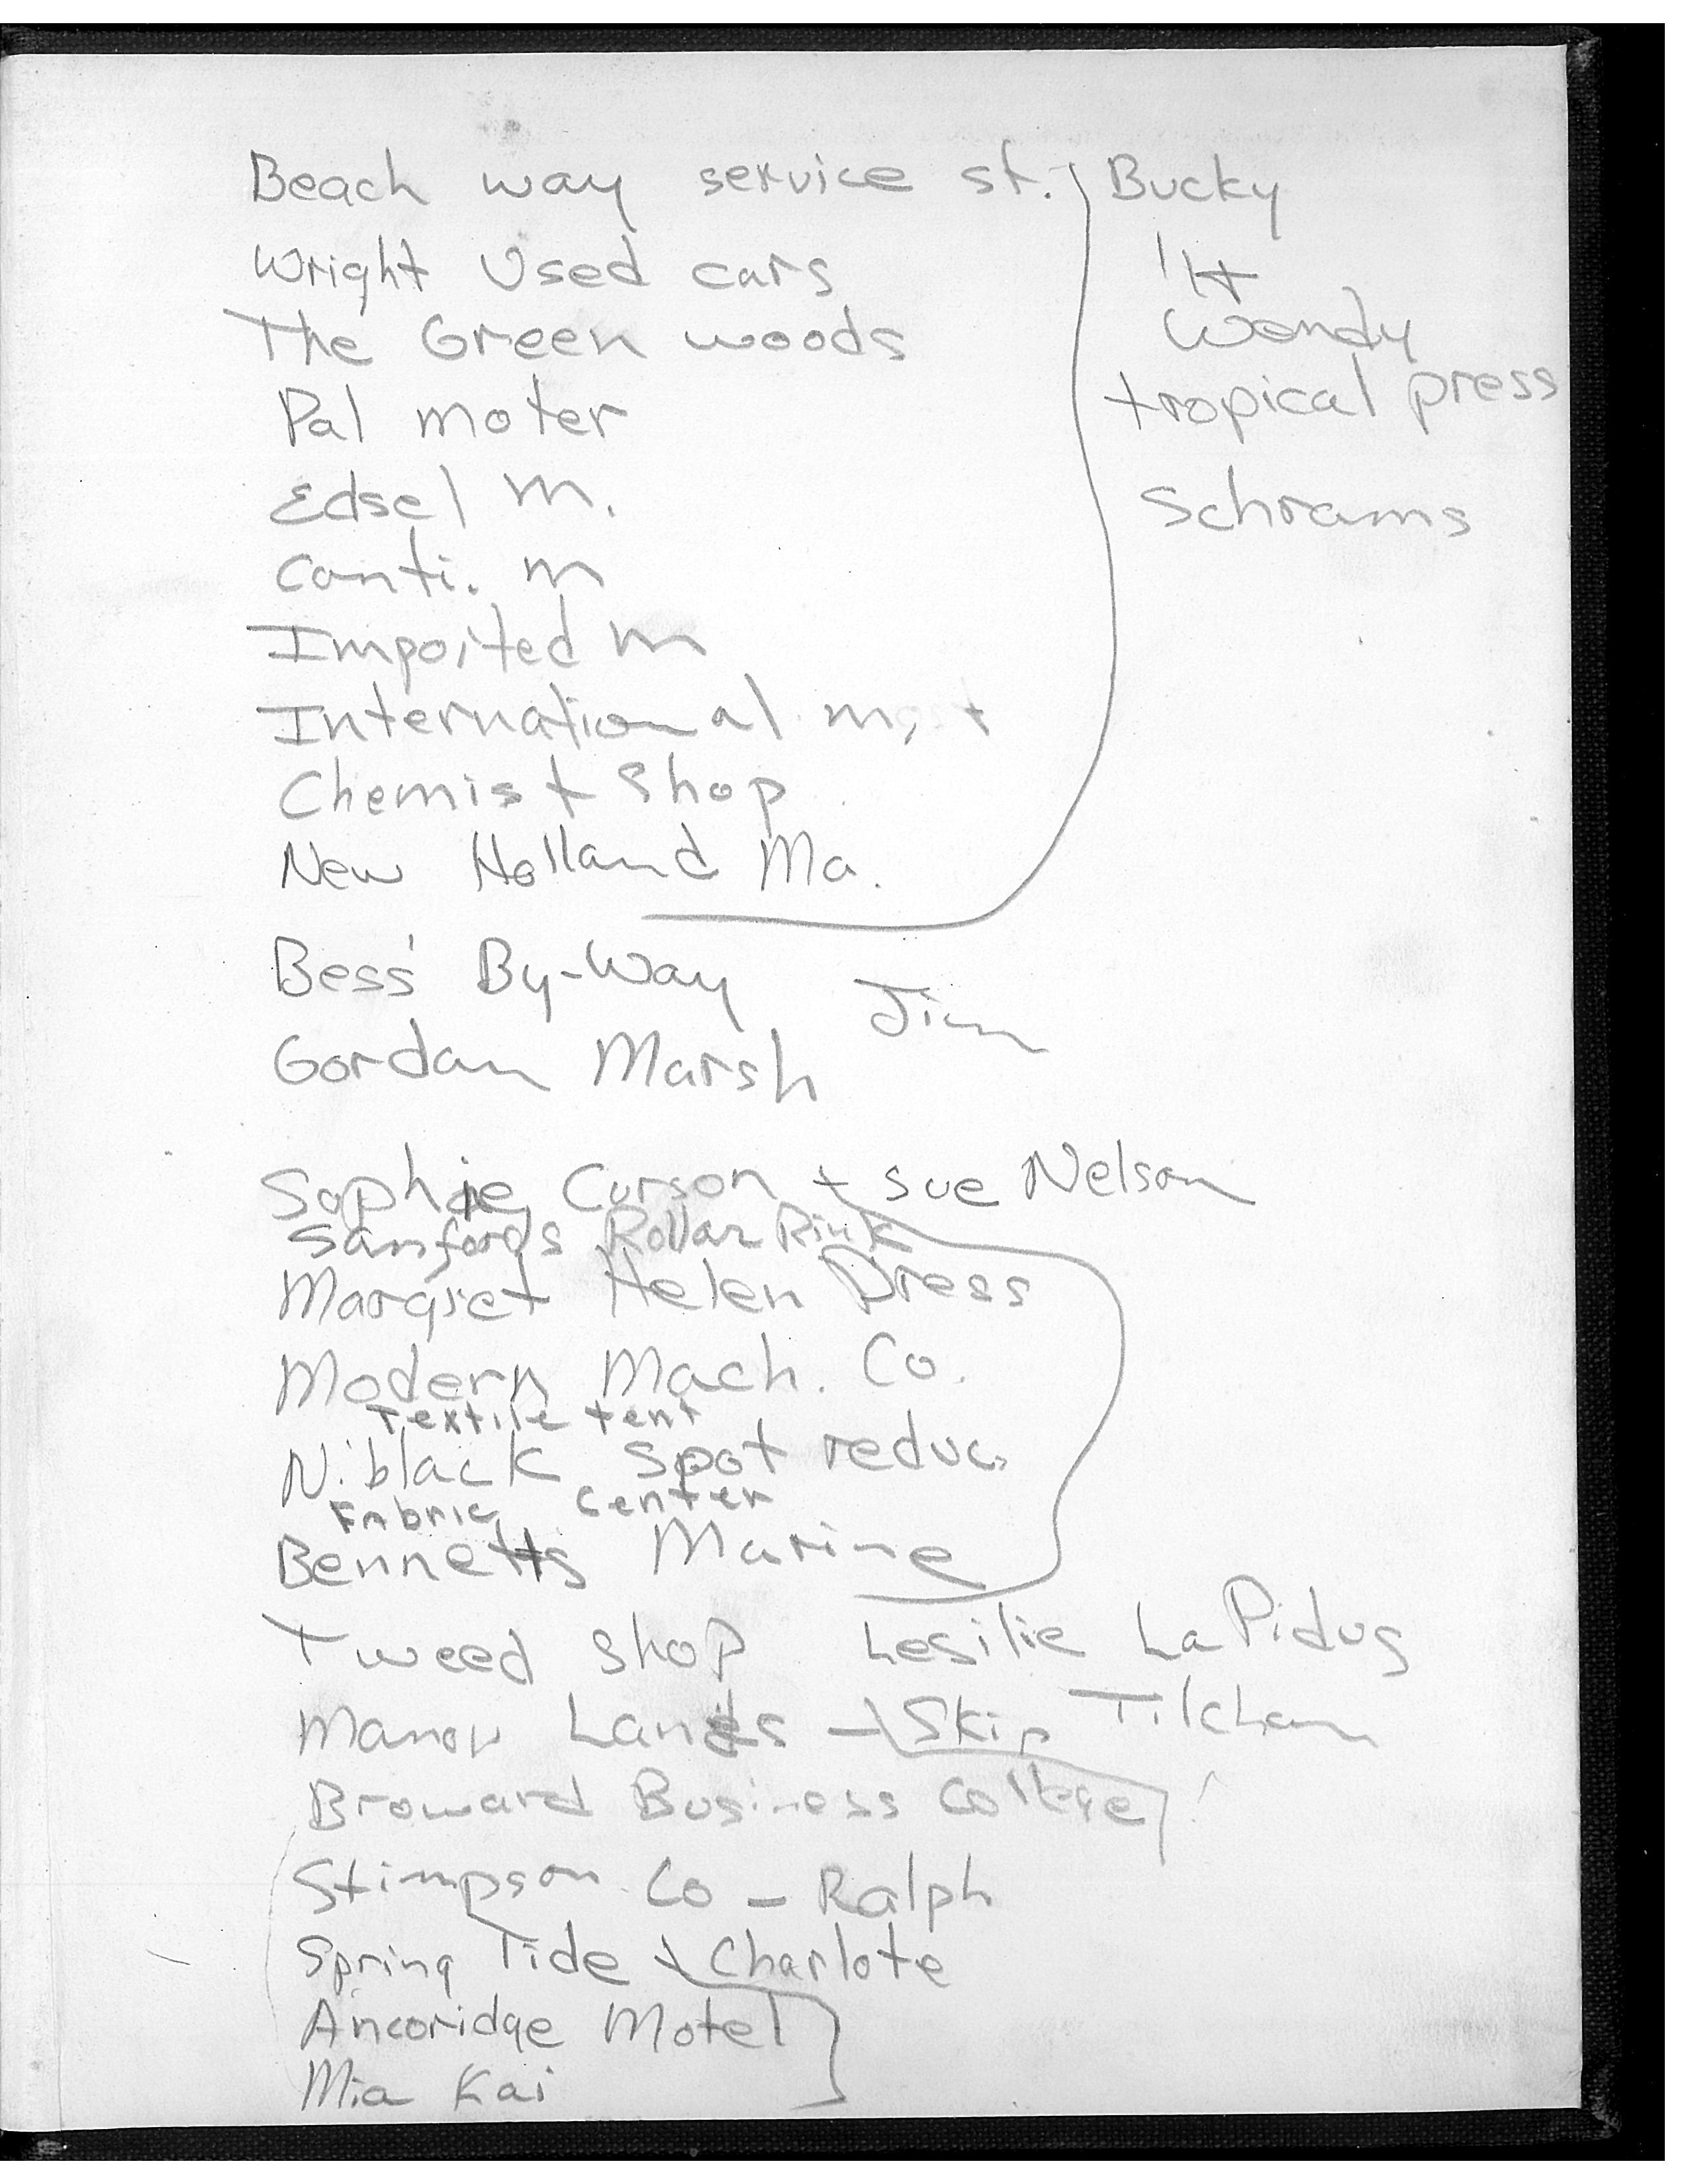 Beach way service st. Bucky
Wright Used cars
The Green woods
Wendy
Pal moter
tropical press
Edsel m.
Schrams
Conti. m
Imported m
International m.
Chemist Shop
New Holland Ma.
Bess' By-Way
Jim
Gordan Marsh
Sophie Curson + Sue Nelson
Sanfords Rollar Rink
Margret Helen Dress
Modern Mach. Co.
Textile tent
Niblack Spot reduc.
Fabric Center
Bennetts Marine
Tweed shop Lesilie La Pidus
Manor Lands - Skip
Broward Business College
Stimpson Co - Ralph
Spring Tide + Charlote
Ancoridge Motel
Mia Kai